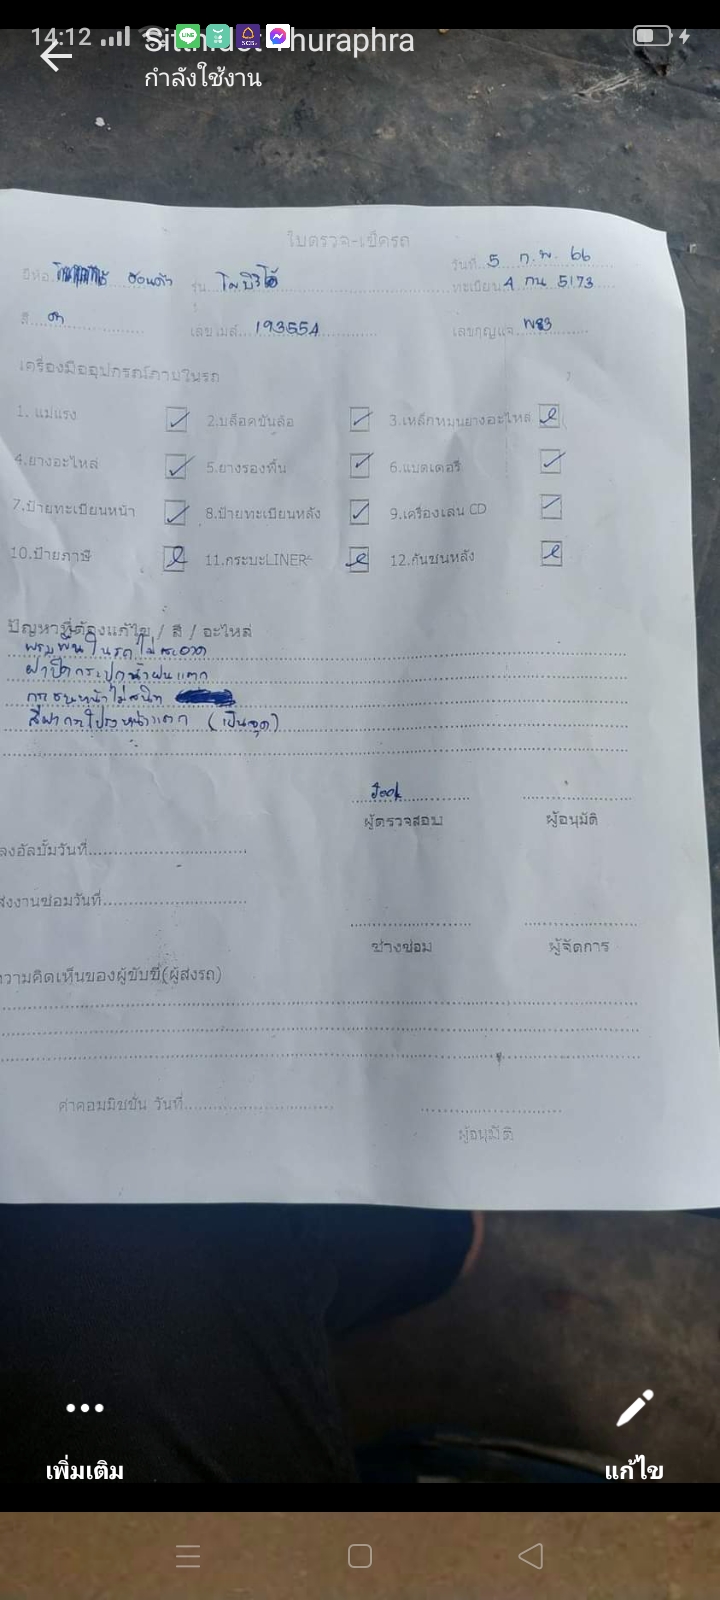 14:12
Sitthidet Thuraphra
กำลังใช้งาน
ใบตรวจ-เช็ครถ
วันที่ 5 ก.พ. 66
ยี่ห้อ ฮอนด้า รุ่น โมบิริโอ้ ทะเบียน 4 กน 5173
สี ดำ เลขไมล์ 193554 เลขกุญแจ N83
เครื่องมืออุปกรณ์ภายในรถ
1. แม่แรง 2.บล็อคขันล้อ 3.เหล็กหมุนยางอะไหล่
4.ยางอะไหล่ 5.ยางรองพื้น 6.แบตเตอรี่
7.ป้ายทะเบียนหน้า 8.ป้ายทะเบียนหลัง 9.เครื่องเล่น CD
10.ป้ายภาษี 11.กระบะLINER 12.กันชนหลัง
ปัญหาที่ต้องแก้ไข / สี / อะไหล่
พรมพื้นในรถไม่สะอาด
ฝาปิดกระปุกน้ำฝนแตก
กันชนหน้าไม่สนิท
สีฝากระโปรงหน้าแตก (เป็นจุด)
ผู้ตรวจสอบ ผู้อนุมัติ
ลงอัลบั้มวันที่
ส่งงานซ่อมวันที่
ช่างซ่อม ผู้จัดการ
ความคิดเห็นของผู้ขับขี่(ผู้ส่งรถ)
ค่าคอมมิชชั่น วันที่
ผู้อนุมัติ
เพิ่มเติม แก้ไข